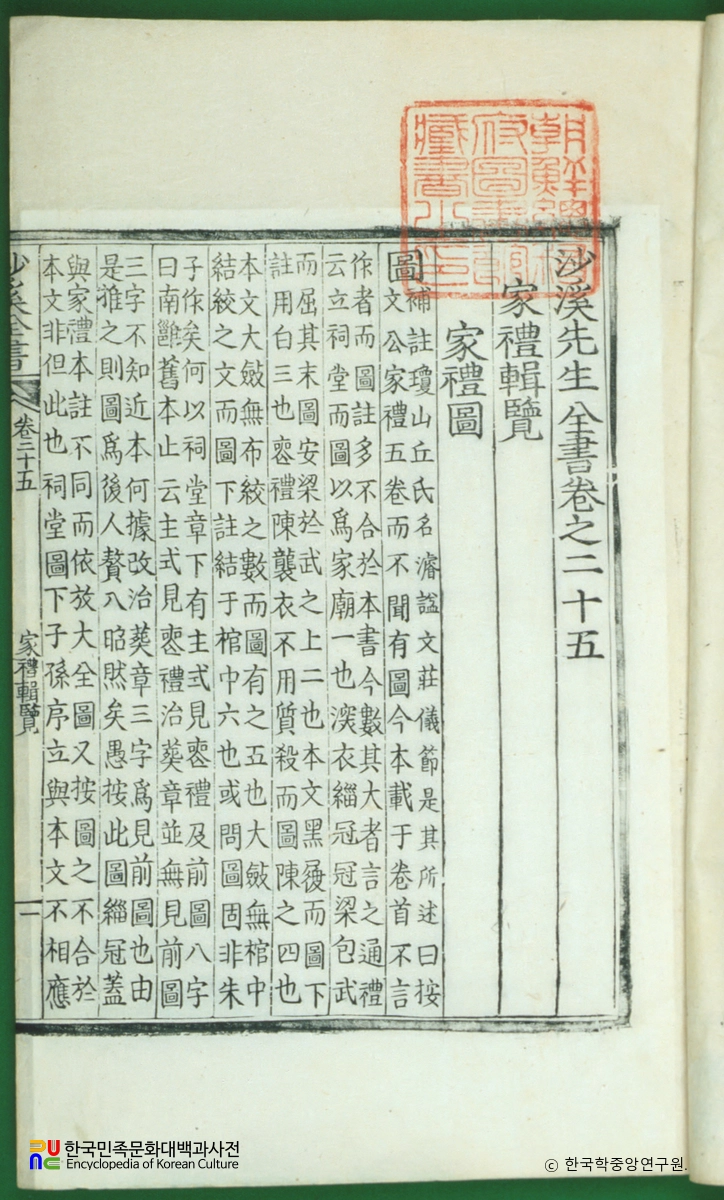 朝鮮總督
府圖書館
藏書之印
沙溪先生全書卷之二十五
家禮輯覽
家禮圖
圖
補註瓊山丘氏名濬諡文莊儀節是其所述曰按
文公家禮五卷而不聞有圖今本載于卷首不言
作者而圖註多不合於本書今數其大者言之通禮
云立祠堂而圖以爲家廟一也深衣緇冠冠梁包武
而屈其末圖安梁於武之上二也本文黑履而圖下
註用白三也喪禮陳襲衣不用質殺而圖陳之四也
本文大斂無布絞之數而圖有之五也大斂無棺中
結絞之文而圖下註結于棺中六也或問圖固非朱
子作矣何以祠堂章下有主式見喪禮及前圖八字
曰南雝舊本止云主式見喪禮治葬章並無見前圖
三字不知近本何據改治葬章三字爲見前圖也由
是推之則圖爲後人贅入昭然矣愚按此圖緇冠蓋
與家禮本註不同而依放大全圖又按圖之不合於
本文非但此也祠堂圖下子孫序立與本文不相應
沙溪全書 卷二十五 家禮輯覽 一
한국민족문화대백과사전
Encyclopedia of Korean Culture
ⓒ 한국학중앙연구원.